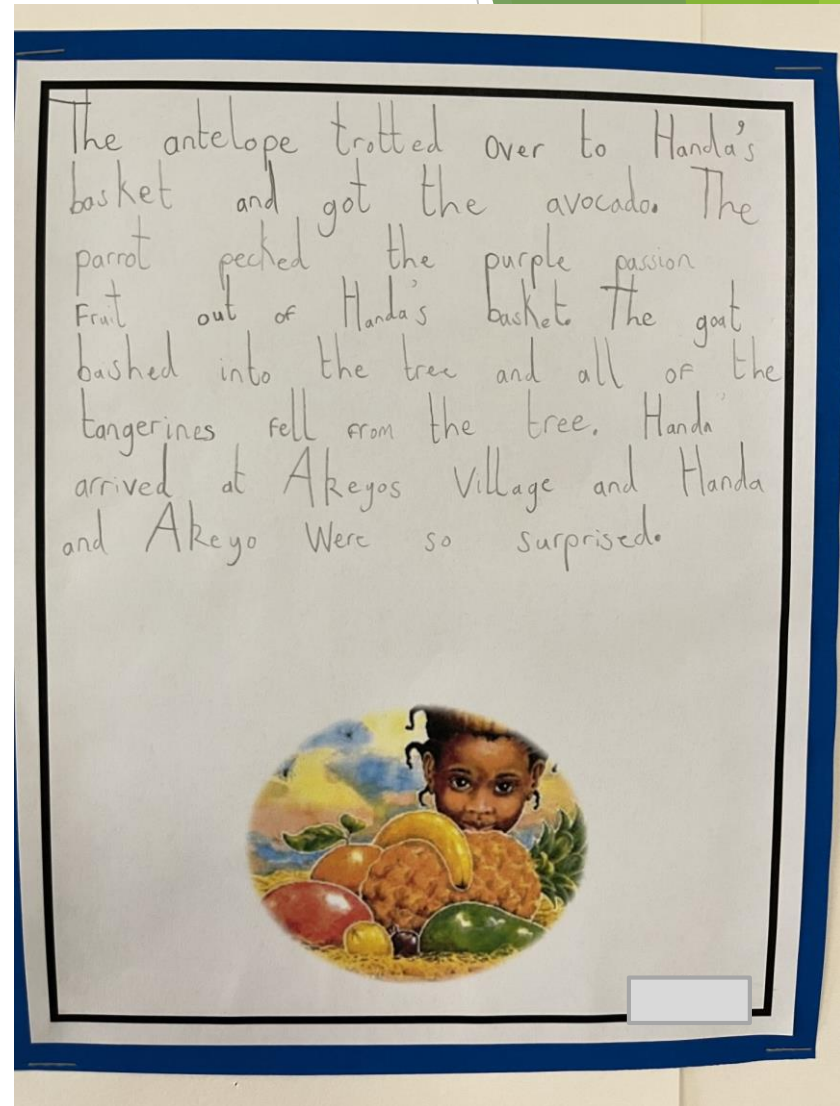 The antelope trotted over to Handa's
basket and got the avocado. The
parrot pecked the purple passion
Fruit out of Handa's basket. The goat
bashed into the tree and all of the
tangerines fell from the tree. Handa
arrived at Akeyos Village and Handa
and Akeyo Were so surprised.